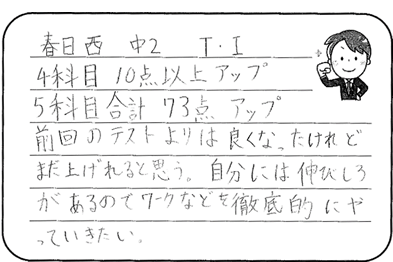 春日西 中2 T・I
4科目 10点以上アップ
5科目合計 73点 アップ
前回のテストよりは良くなったけれど
まだ上げれると思う。自分には伸びしろ
があるのでワークなどを徹底的にや
っていきたい。